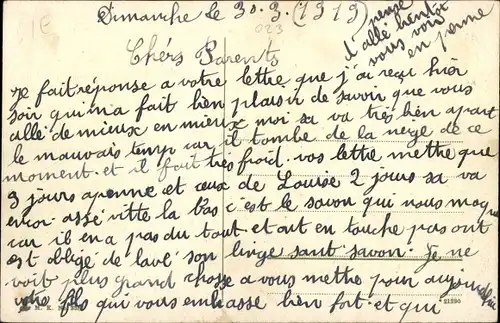 Dimanche le 30.3.(1919)
pense
d'allé bientôt
vous voir
en perme
Chérs Parents
Je fait réponse a votre lettre que j'ai reçu hier
soir qui m'a fait bien plaisir de savoir que vous
allé de mieux en mieux moi sa va très bien apart
le mauvais temp car il tombe de la neige de ce
moment. et il fait très froid. vos lettre mettre que
3 jours apenne et ceux de Louise 2 jours sa va
encor assé vitte la bas c'est le savon qui nous manque
car il en a pas du tout et ont en touche pas ont
est obligé de lavé son linge sant savon. Je ne
voit plus grand chosse a vous mettre pour aujourdhui
votre fils qui vous embrasse bien fort et qui
21290